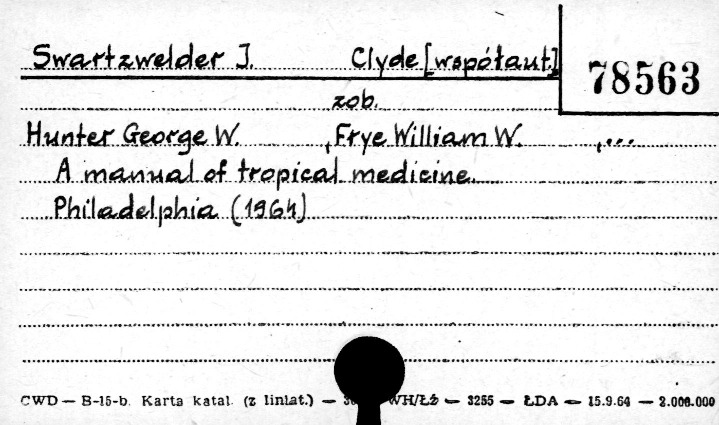 Swartzwelder J. Clyde [współaut.]
78563
zob.
Hunter George W. , Frye William W. ,...
A manual of tropical medicine.
Philadelphia (1964)
CWD — B-15-b. Karta katal. (z liniat.) — WH/Łż — 3255 — ŁDA — 15.9.64 — 2.000.000